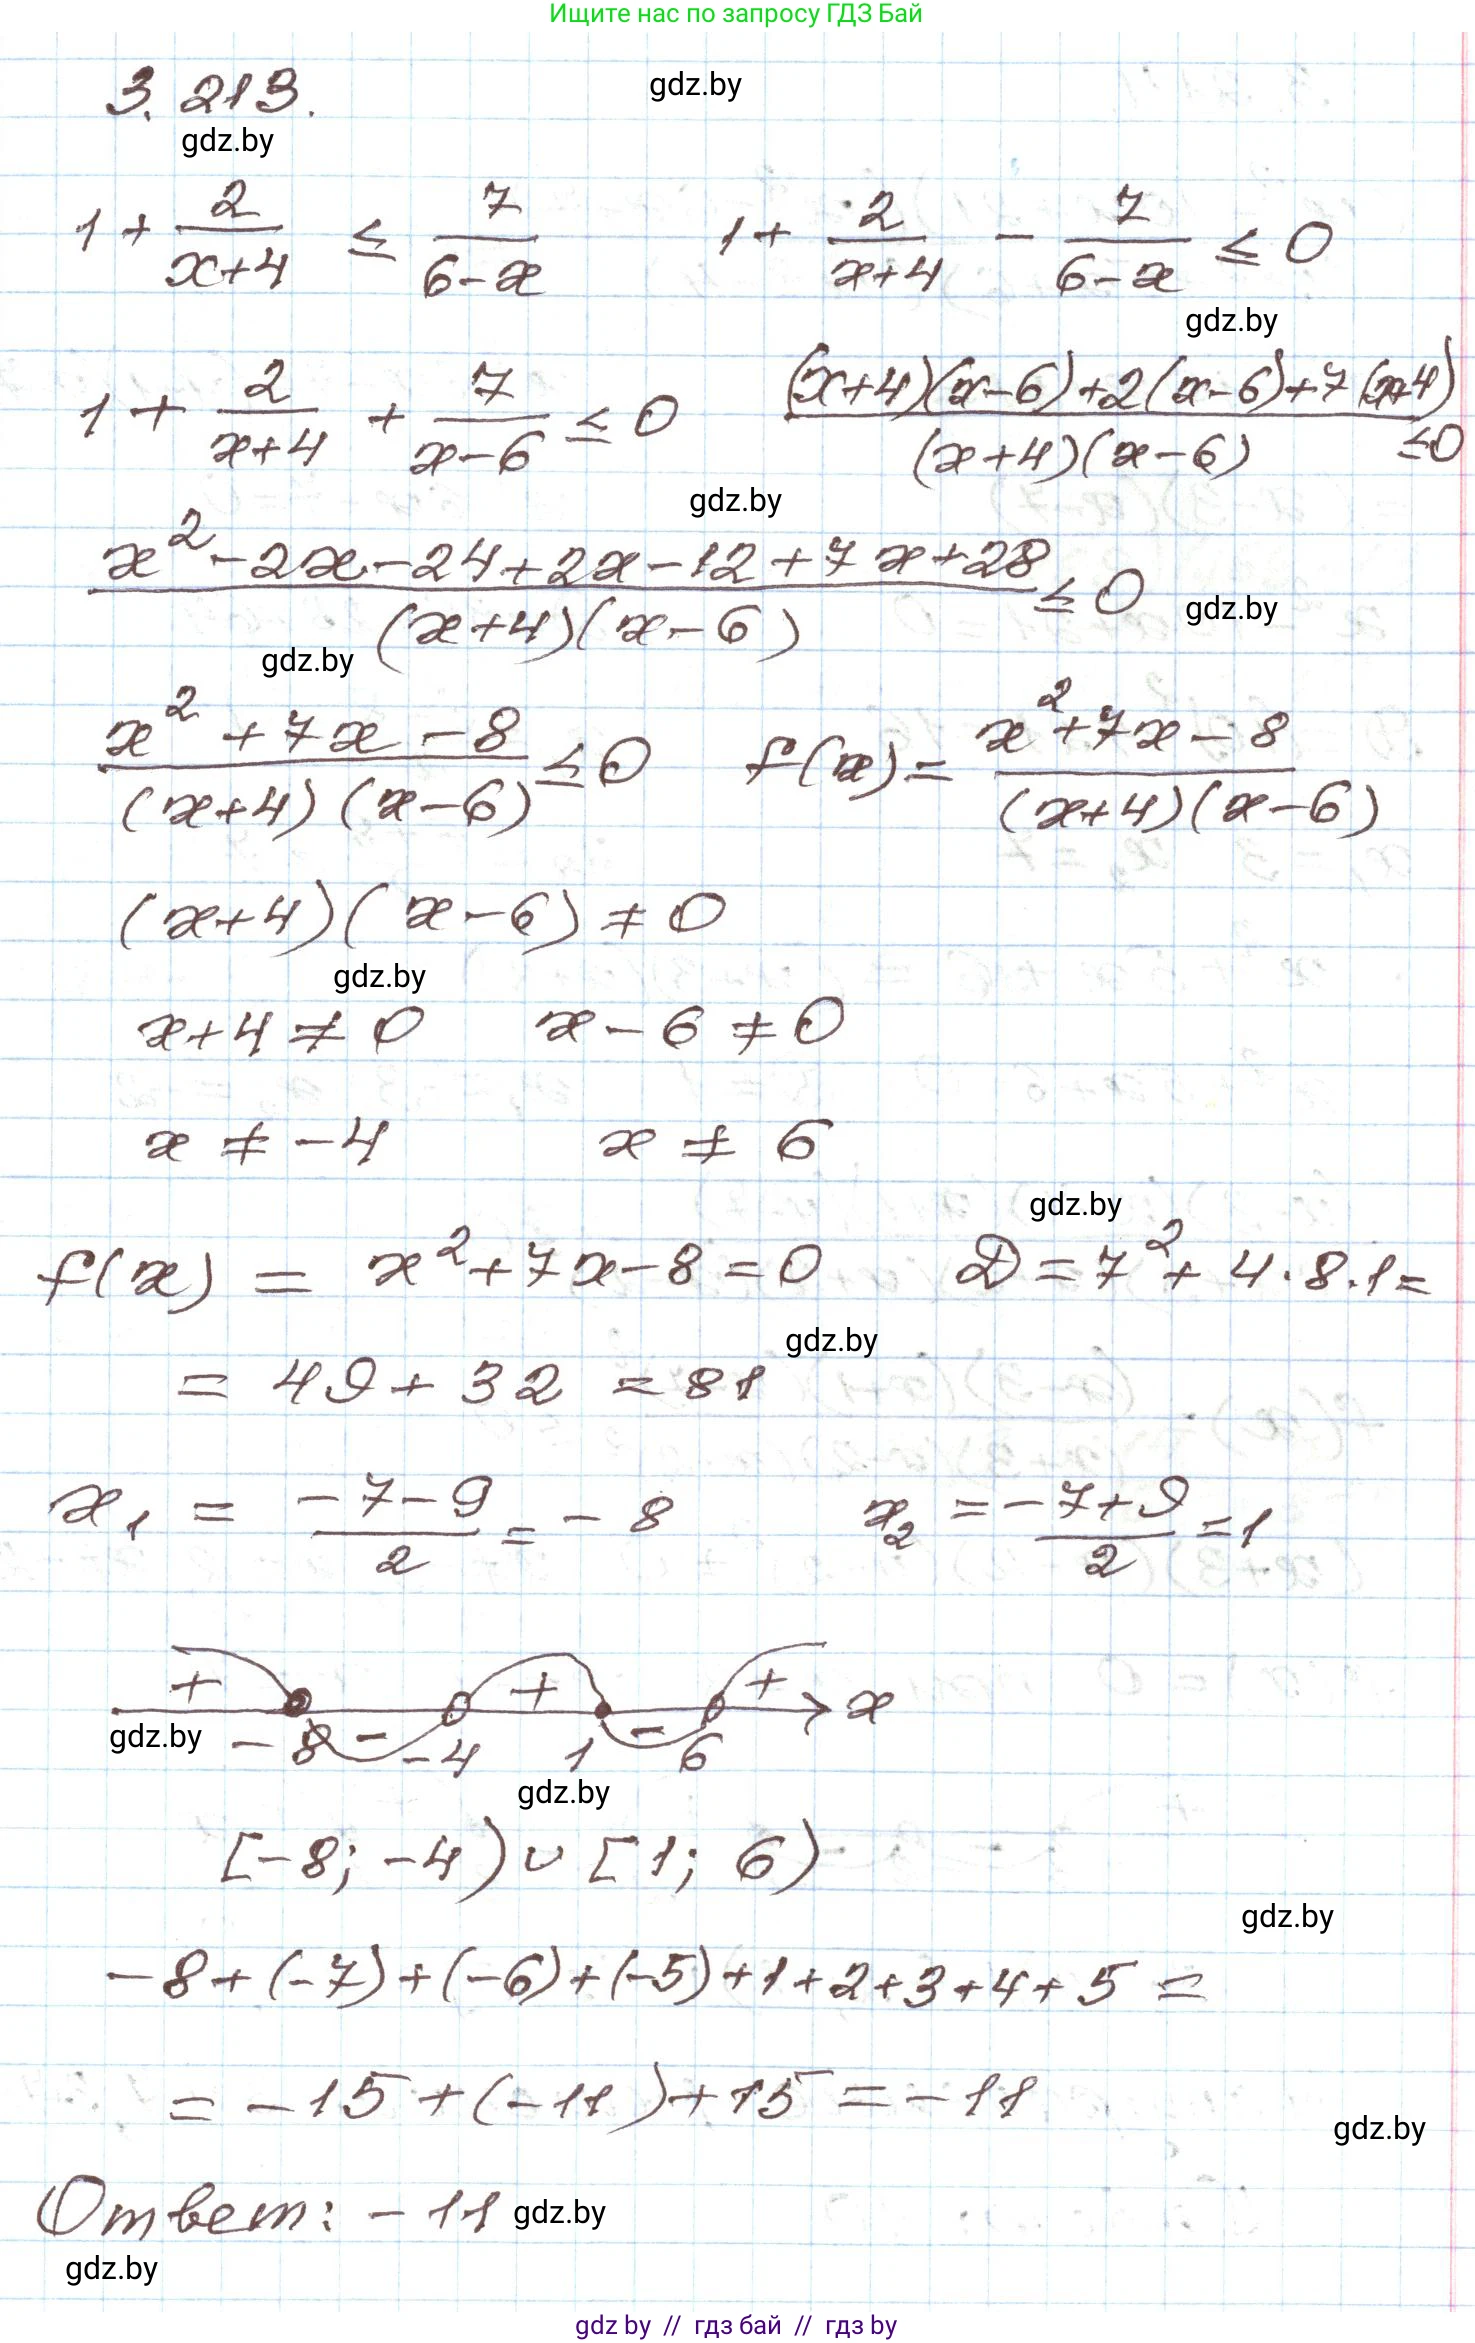 Ищите нас по запросу ГДЗ Бай
3.219.
gdz.by
gdz.by
1 + 2/(x+4) ≤ 7/(6-x)    1 + 2/(x+4) - 7/(6-x) ≤ 0
gdz.by
1 + 2/(x+4) + 7/(x-6) ≤ 0    ((x+4)(x-6)+2(x-6)+7(x+4))/((x+4)(x-6)) ≤0
gdz.by
(x² - 2x - 24 + 2x - 12 + 7x + 28)/((x+4)(x-6)) ≤ 0
gdz.by
gdz.by
(x² + 7x - 8)/((x+4)(x-6)) ≤ 0    f(x) = (x² + 7x - 8)/((x+4)(x-6))
(x+4)(x-6) ≠ 0
gdz.by
x+4 ≠ 0    x - 6 ≠ 0
x ≠ -4    x ≠ 6
gdz.by
f(x) = x² + 7x - 8 = 0    D = 7² + 4·8·1 =
gdz.by
= 49 + 32 = 81
x₁ = (-7-9)/2 = -8    x₂ = (-7+9)/2 = 1
+ - + - + x
gdz.by
-8 -4 1 6
gdz.by
[-8; -4) ∪ [1; 6)
gdz.by
-8+(-7)+(-6)+(-5)+1+2+3+4+5 =
= -15+(-11)+15 = -11
gdz.by
Ответ: -11
gdz.by
gdz.by
gdz by // гдз бай // гдз by